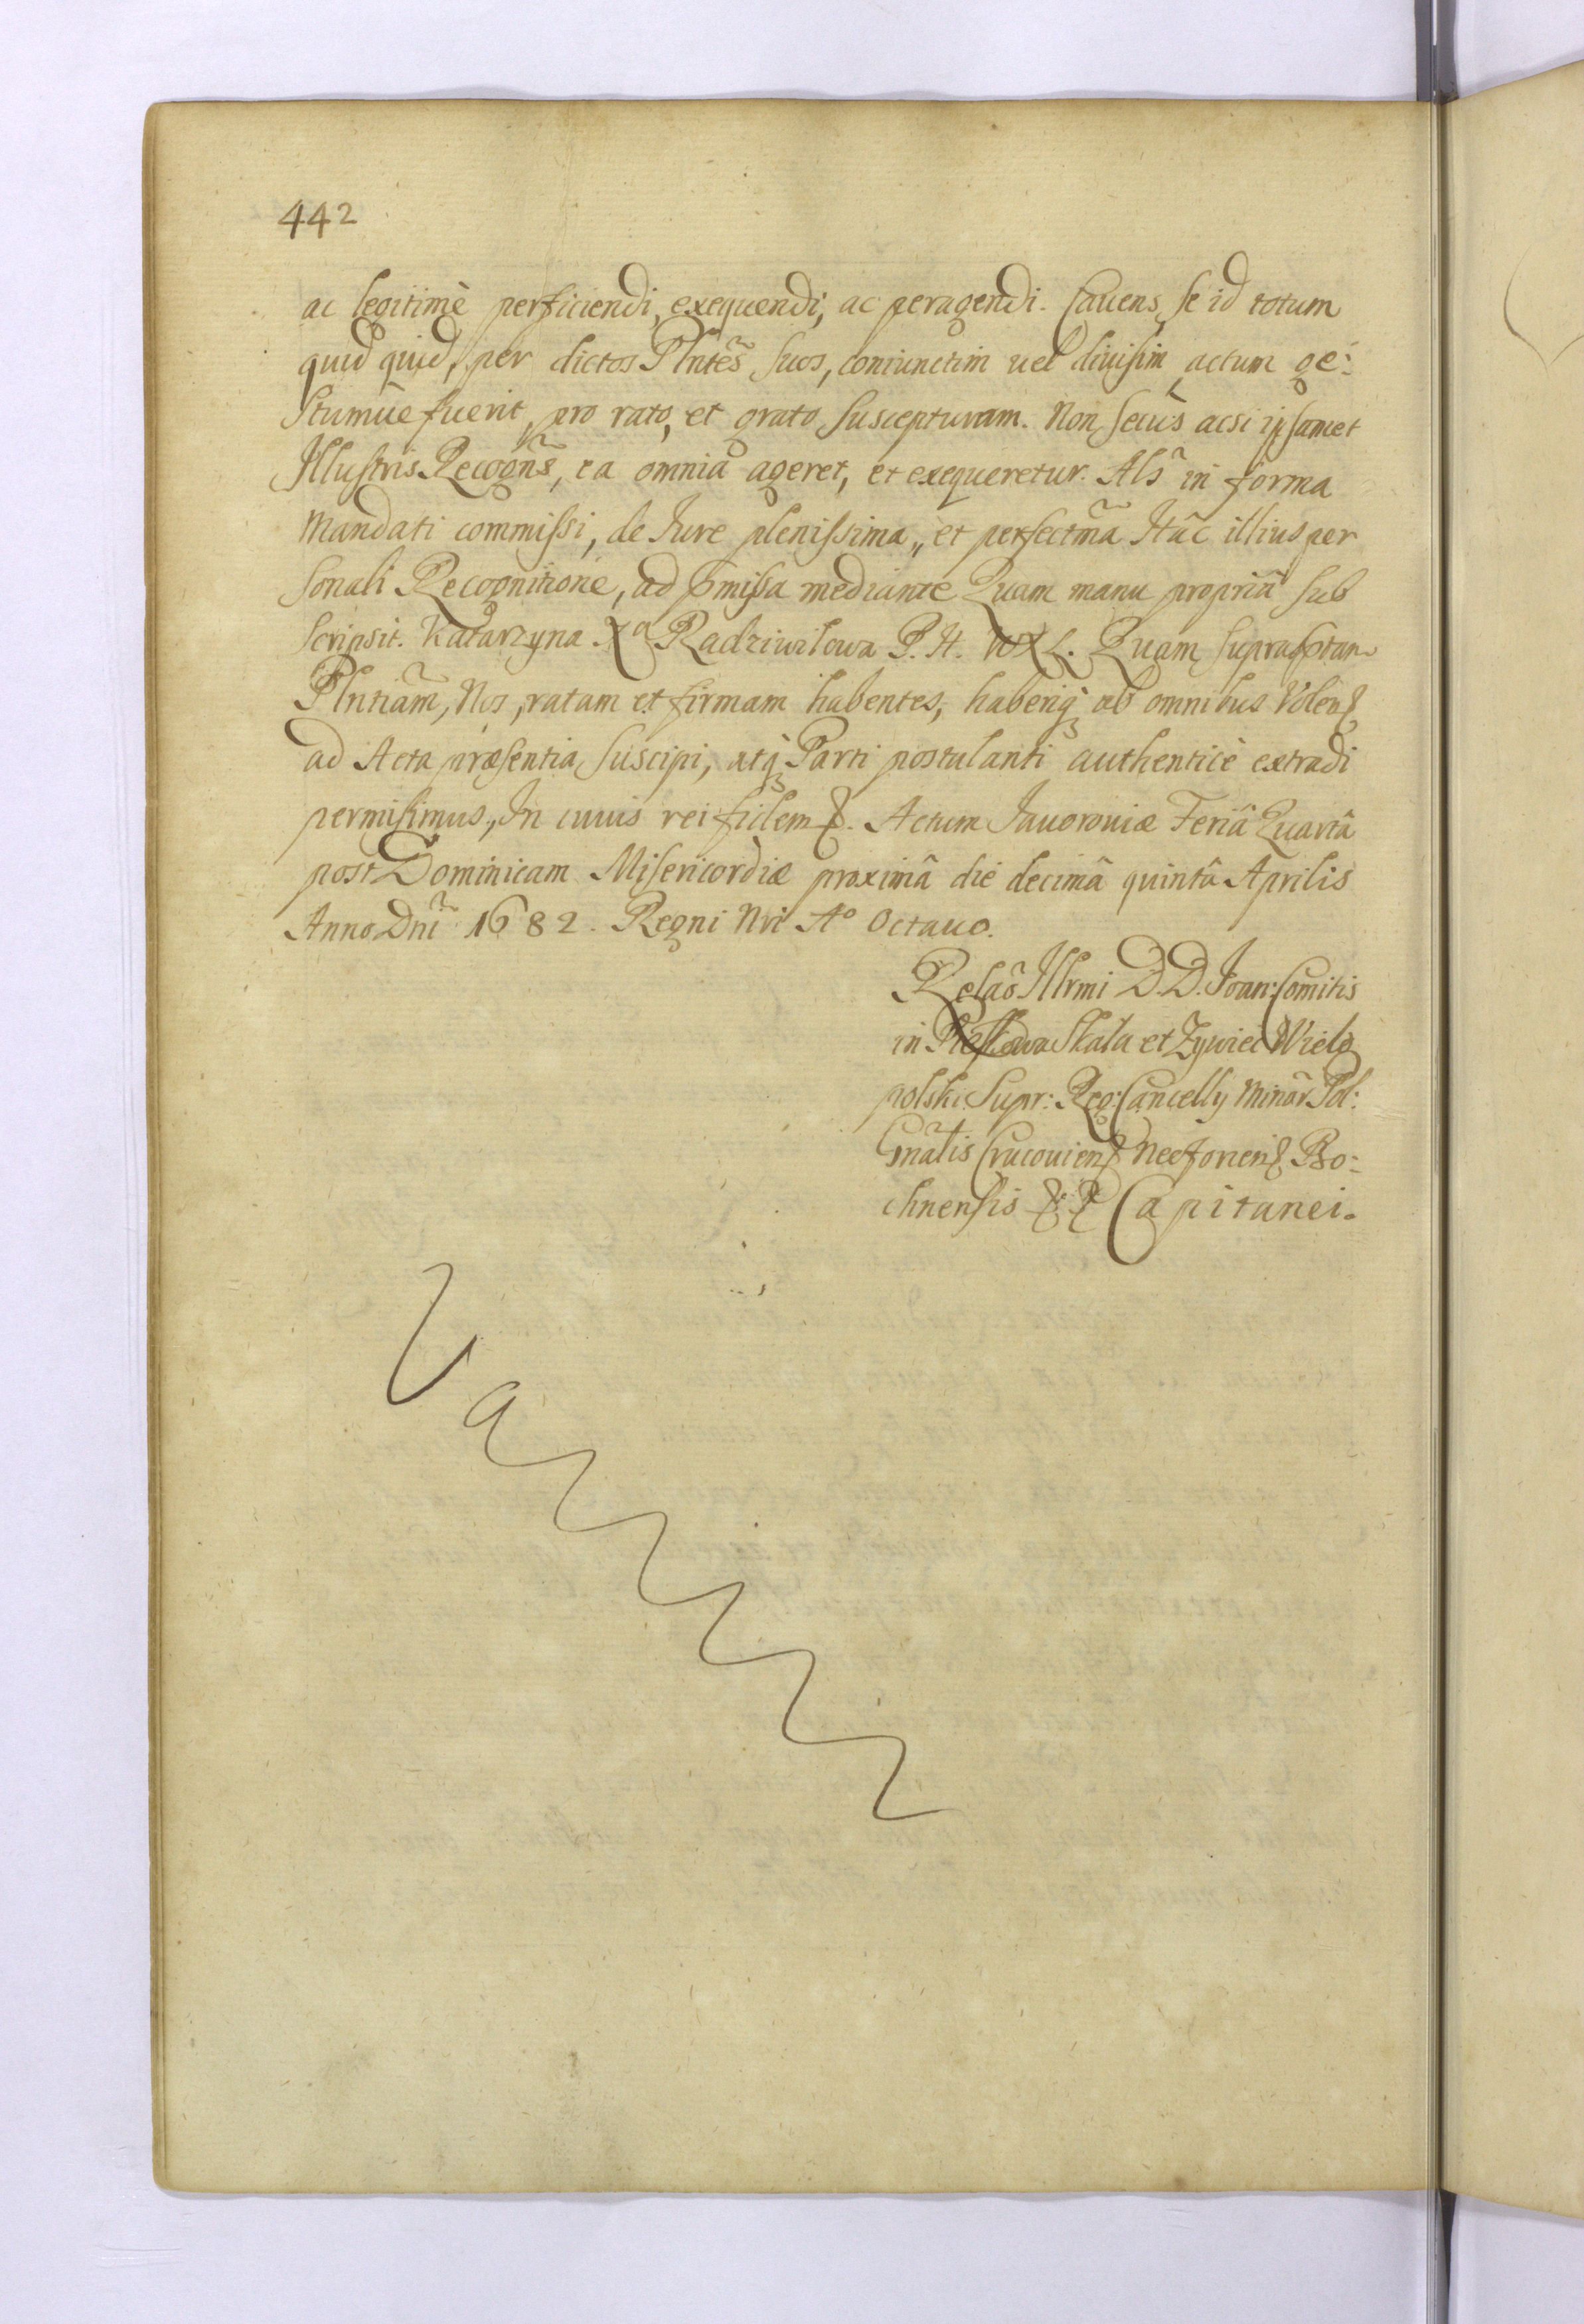 442
ac legitimè perficiendi, exequendi, ac peragendi. Cavens se id totum
quid quid, per dictos Plntẽs suos, coniunctim uel diuisim actum ge:
stumue fuerit, pro rato, et grato suscepturam. Non secùs acsi ipsamet
Illustris Recogñs, ea omnia ageret, et exequeretur. Als̃ in forma
Mandati commissi, de Iure plenissima, et perfectm̃a Hãc illius per
sonali Recognitione, ad pmissa mediante Quam manu propriâ sub
scripsit. Katarzyna Xa Radziwiłowa P. H. WXL. Quam suprasptam
Plntiam̃, Nos, ratam et firmam habentes, haberiq ab omnibus Volen
ad Acta præsentia suscipi, atq Parti postulanti authenticè extradi
permisimus, In cuius rei fidem &. Actum Iauorouiæ Feriâ Quartâ
post Dominicam Misericordiæ proximâ die decimâ quintâ Aprilis
Anno Dnĩ 1682. Regni Nri Ao Octauo.
Relaõ Illrmi D.D. Ioan: Comitis
in Pieskowa Skała et Zywiec Wielo
polski Supr: Reg: Cancelly Minõr Pol:
Gnãlis Cracouien Bo:
chnensis & & Capitanei.